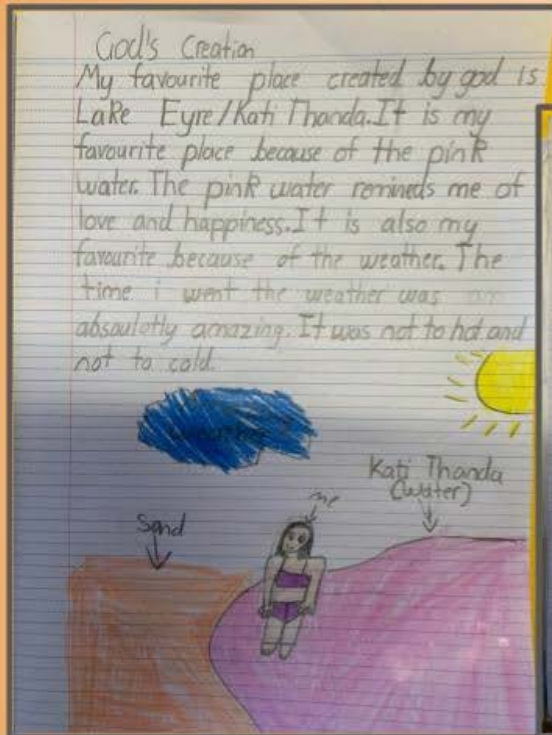 God's Creation
My favourite place created by god is
Lake Eyre/Kati Thanda. It is my
favourite place because of the pink
water. The pink water remineds me of
love and happiness. It is also my
favourite because of the weather. The
time i went the weather was
absoulotly amazing. It was not to hot and
not to cold.
Kati Thanda
(water)
me
Sand